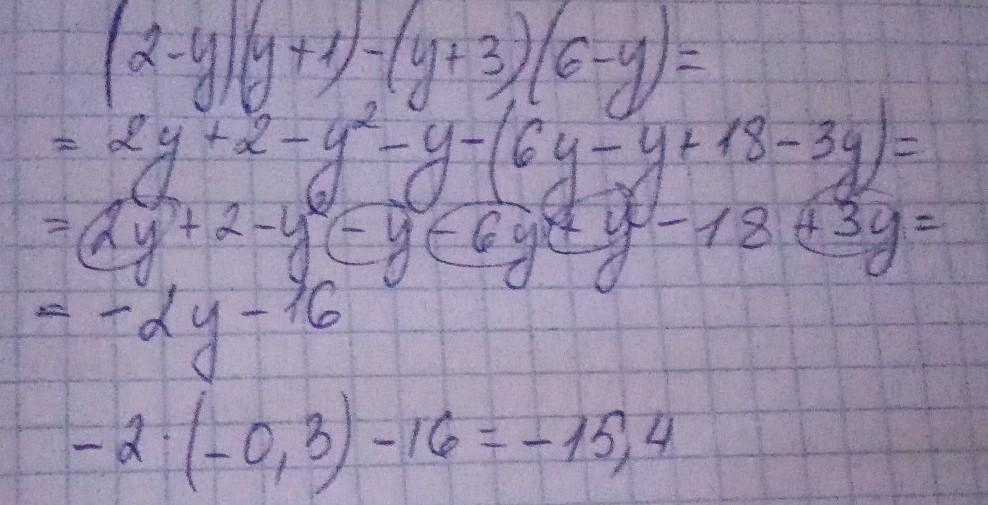 (2-y)(y+1)-(y+3)(6-y)=
= 2y+2-y²-y-(6y-y+18-3y)=
= 2y+2-y²-y-6y+y-18+3y=
= -2y-16
-2·(-0,3)-16=-15,4